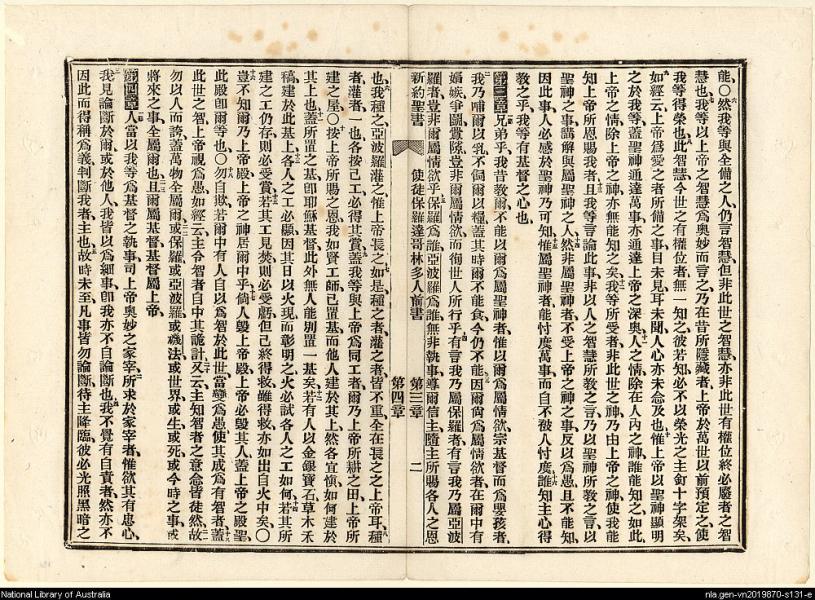 能、〇然我等與全備之人、仍言智慧、但非此世之智慧、亦非此世有權位終必廢者之智
慧也、我等以上帝之智慧爲奧妙而言之、乃在昔所隱藏者、上帝於萬世以前預定之、使
我等得榮也、此智慧、今世之有權位者、無一知之、彼若知、必不以榮光之主釘十字架矣、
如經云、上帝爲愛之者所備之事、目未見、耳未聞、人心亦未念及也、惟上帝以聖神顯明
之於我等、蓋聖神通達萬事、亦通達上帝之深奧、人之情、除在人內之神、誰能知之、如此
上帝之情、除上帝之神、亦無能知之矣、我等所受者、非此世之神、乃由上帝之神、使我能
知上帝所恩賜我者、且我等言論此事、非以人之智慧所教之言、乃以聖神所教之言、以
聖神之事、講解與屬聖神之人、然非屬聖神者、不受上帝之神之事、反以爲愚、且不能知、
因此事人必感於聖神、乃可知、惟屬聖神者、能忖度萬事、而自不被人忖度、誰知主心、得
教之乎、我等有基督之心也、
第三章 兄弟乎、我昔教爾、不能以爾爲屬聖神者、惟以爾爲屬情欲、宗基督而爲嬰孩者、
我乃哺爾以乳、不飼爾以糧、蓋其時爾不能食、今仍不能、因爾尙爲屬情欲者、在爾中有
媢嫉爭鬭釁隙、豈非爾屬情欲而徇世人所行乎、有言我乃屬保羅者、有言我乃屬亞波
羅者、豈非爾屬情欲乎、保羅爲誰、亞波羅爲誰、無非執事、導爾信主、隨主所賜各人之恩
新約聖書 使徒保羅達哥林多人前書 第三章 第四章 二
也、我種之、亞波羅灌之、惟上帝長之、如是種之者、灌之者、皆不重、全在長之之上帝耳、種
者、灌者、一也、各按己工、必得其賞、蓋我等與上帝爲同工者、爾乃上帝所耕之田、上帝所
建之屋、〇按上帝所賜之恩、我如賢工師、已置基、而他人建於其上、然各宜愼如何建於
其上也、蓋所置之基、卽耶穌基督、此外無人能別置一基矣、若有人以金銀寶石草木禾
稿、建於此基上、各人之工必顯、因其日以火現而彰明之、火必試各人之工如何、若其所
建之工仍存、則必受賞、若其工見焚、則必受虧、但己終得救、雖得救、亦如出自火中矣、〇
豈不知爾乃上帝殿、上帝之神居爾中乎、倘人毀上帝殿、上帝必毀其人、蓋上帝之殿聖、
此殿卽爾等也、〇勿自欺、若爾中有人自以爲智於此世、當變爲愚、使其成爲有智者、蓋
此世之智、上帝視爲愚、如經云、主令智者自中其詭計、又云、主知智者之意念皆徒然、故
勿以人而誇、蓋萬物全屬爾、或保羅、或亞波羅、或磯法、或世界、或生、或死、或今時之事、或
將來之事、全屬爾也、且爾屬基督、基督屬上帝、
第四章 人當以我等爲基督之執事、司上帝奧妙之家宰、所求於家宰者、惟欲其有忠心、
我見論斷於爾、或於他人、我皆以爲細事、卽我亦不自論斷也、我不覺有自責者、然亦不
因此而得稱爲義、判斷我者、主也、故時未至、凡事皆勿論斷、待主降臨、彼必光照黑暗之
National Library of Australia
nla.gen-vn2019870-s131-e